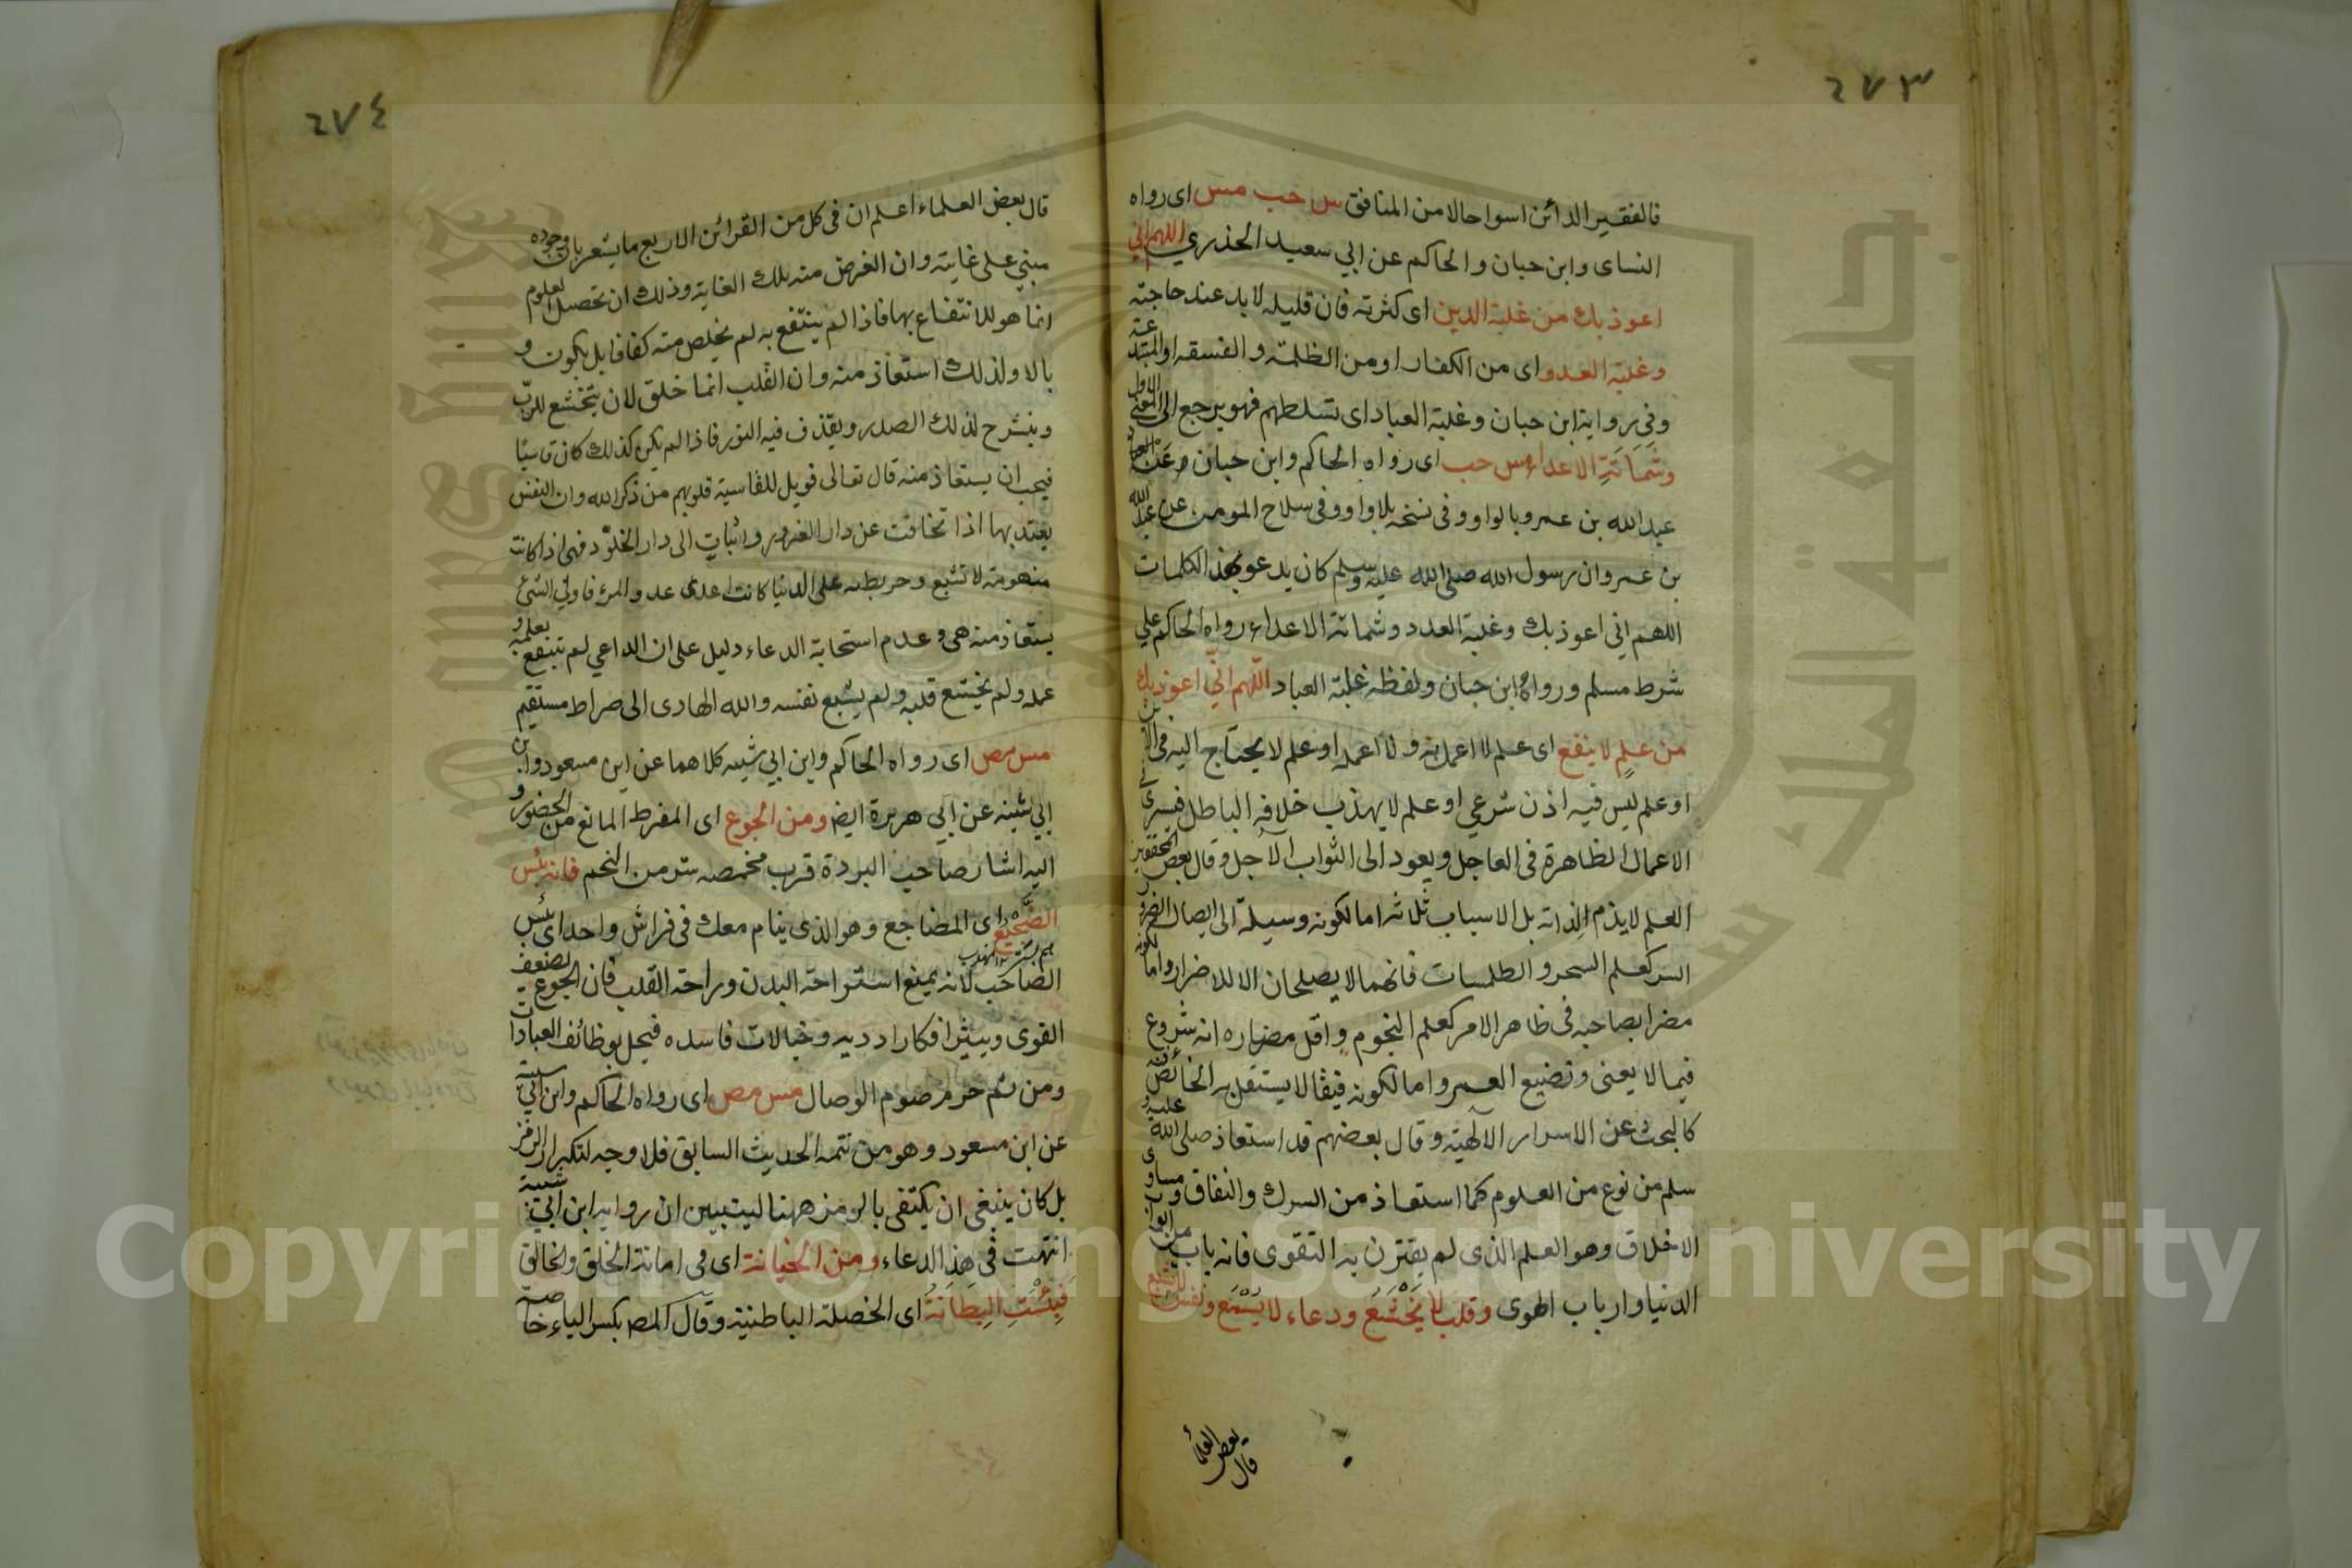 ٢٧٣
فالفقير الدائن اسوا حالا من المنافق س حب مس اى رواه
النساى وابن حبان والحاكم عن ابي سعيد الخدري اللهم اني
اعوذ بك من غلبة الدين اى كثرته فان قليله لابد عند حاجته
وغلبة العدو اى من الكفار او من الظلمة والفسقه او المبتدعة
وفى رواية ابن حبان وغلبة العباد اى تسلطهم فهو يرجع الى المعنى الاول
وشَمَاتَةِ الاعداء مس حب اى رواه الحاكم وابن حبان عن
عبد الله بن عمرو بالواو وفى نسخه بلا واو وفى سلاح المومن عن عبد الله
بن عمر وان رسول الله صلى الله عليه وسلم كان يدعو بهذه الكلمات
اللهم اني اعوذ بك وغلبة العدد وشماتة الاعداء رواه الحاكم علي
شرط مسلم ورواه ابن حبان ولفظه غلبة العباد اللّهم اني اعوذ بك
من علمٍ لا ينفع اى علم لا اعمل به ولا اعمله او علم لا يحتاج اليه فى الدين
او علم ليس فيه اذن شرعي او علم لا يهذب خلافه الباطل فيسرى
الاعمال الظاهرة فى العاجل ويعود الى الثواب الآجل وقال بعض المحققين
العلم لا يذم لذاته بل الاسباب ثلاثه اما لكونه وسيلة الى ايصال الضرر
السر كعلم السحر والطلمسات فانهما لا يصلحان الا للاضرار واما لكونه
مضرا بصاحبه فى ظاهر الامر كعلم النجوم واقل مضاره انه شروع
فيما لا يعنى وتضيع العمر واما لكونه لا يستقل به الخائض فيه
كالبحث عن الاسرار الالهية وقال بعضهم قد استعاذ صلى الله عليه و
سلم من نوع من العلوم كما استعاذ من السرك والنفاق ومساوى
الاخلاق وهو العلم الذى لم يقترن به التقوى فانه باب من ابواب
الدنيا وارباب الهوى وقلب لا يَخْشَعُ ودعاء لا يُسْمَع ونفس لا تشبع
قال بعض العلماء
٢٧٤
قال بعض العلماء اعلم ان فى كل من القرائن الاربع ما يشعر بان وجوده
مبني على غايته وان الغرض منه تلك الغاية وذلك ان تحصيل العلوم
انما هو للانتفاع بها فاذا لم ينتفع به لم يخلص منه كفافا بل يكون و
بالا ولذلك استعاذ منه وان القلب انما خلق لان يتخشع للربّ
وينشرح لذلك الصدر ويقذف فيه النور فاذا لم يكن كذلك كان قاسيًا
فيجب ان يستعاذ منه قال تعالى فويل للقاسية قلوبهم من ذكر الله وان النفس
يعتد بها اذا تخافت عن دار الغرور واثبات الى دار الخلود فهى اذا كانت
منهومة لا تشبع وحريطه على الدنيا كانت اعدى عدو المرء فاولي الشئ
يستعاذ منه هى وعدم استحابة الدعاء دليل على ان الداعي لم ينتفع بعلمه و
عمله ولم يخشع قلبه ولم يشبع نفسه والله الهادى الى صراط مستقيم
مس مص اى رواه الحاكم وابن ابي شيبه كلاهما عن ابن مسعود وابن
ابي شيبه عن ابي هريرة ايض ومن الجوع اى المفرط المانع من الحضور و
اليه اشار صاحب البردة فرب مخمصه شر من التخم فانه بئس
الضَّجيع اى المضاجع وهو الذى ينام معك فى فراش واحد اى بئس
الصاحب لانه يمنع استراحة البدن وراحة القلب فان الجوع يضعف
القوى ويثير افكارا رديه وخيالات فاسده فيخل بوظائف العبادات
ومن ثم حرم صوم الوصال مس مص اى رواه الحاكم وابن ابي شيبه
عن ابن مسعود وهو من تتمه الحديث السابق فلا وجه لتكرار الرمز
بل كان ينبغى ان يكتفى بالرمز ههنا ليتبين ان رواية ابن ابي شيبة
انتهت فى هذا الدعاء ومن الخيانة اى فى امانة الخلق والخالق
فَبِئْسَتِ البِطَانَةُ اى الخصلة الباطنية وقال المص بكسر الباء خاصة
جامعة الملك سعود
King Saud University
Copyright © King Saud University